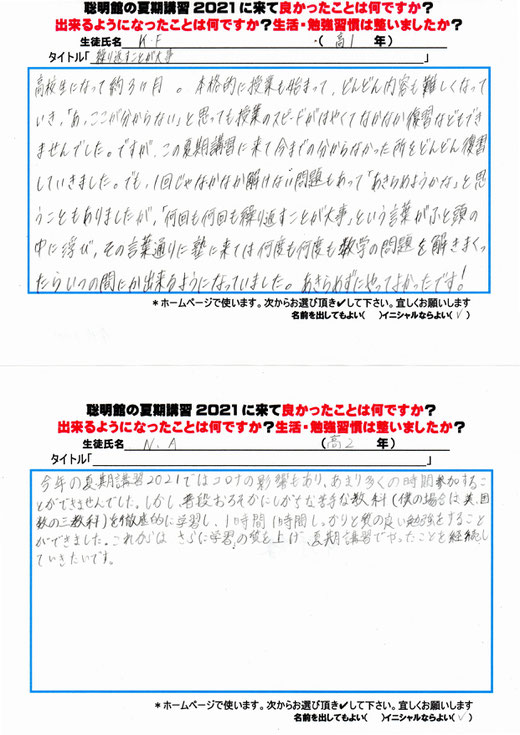 聡明館の夏期講習2021に来て良かったことは何ですか?
出来るようになったことは何ですか?生活・勉強習慣は整いましたか?
生徒氏名 K.F ( 高1 年)
タイトル「 繰り返すことが大事 」
高校生になって約3ヶ月。本格的に授業も始まって、どんどん内容も難しくなって
いき、「あっ、ここが分からない」と思っても授業のスピードがはやくてなかなか復習などもでき
ませんでした。ですが、この夏期講習に来て今までの分からなかった所をどんどん復習
していきました。でも、1回じゃなかなか解けない問題もあって「あきらめようかな」と思
うこともありましたが、「何回も何回も繰り返すことが大事」という言葉がふと頭の
中に浮び、その言葉通りに塾に来ては何度も何度も数学の問題を解きまくっ
たらいつの間にか出来るようになっていました。あきらめずにやってよかったです!
*ホームページで使います。次からお選び頂き✔して下さい。宜しくお願いします
名前を出してもよい( )イニシャルならよい(✓)
聡明館の夏期講習2021に来て良かったことは何ですか?
出来るようになったことは何ですか?生活・勉強習慣は整いましたか?
生徒氏名 N.A ( 高2 年)
タイトル「 」
今年の夏期講習2021ではコロナの影響もあり、あまり多くの時間参加するこ
とができませんでした。しかし、普段おろそかにしがちな苦手な教科(僕の場合は英、国
数の三教科)を徹底的に学習し、1時間1時間しっかりと質の良い勉強をすること
ができました。これからは さらに学習の質を上げ、夏期講習でやったことを継続し
ていきたいです。
*ホームページで使います。次からお選び頂き✔して下さい。宜しくお願いします
名前を出してもよい( )イニシャルならよい(✓)